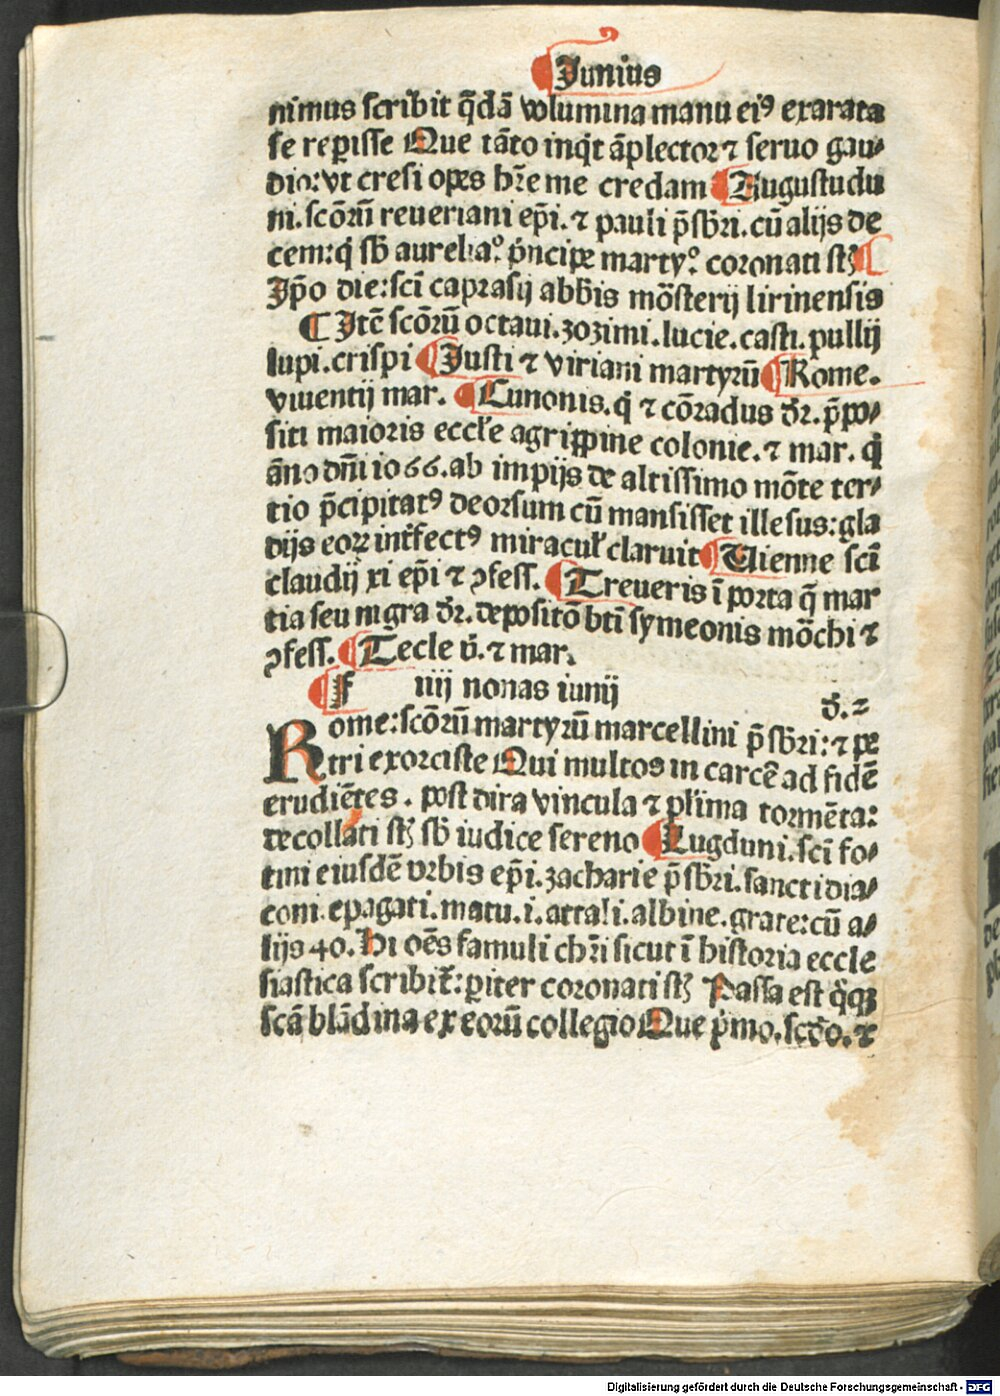 Junius
nimus scribit q̄dā volumina manu eiꝰ exarata
se reperisse Que tāto inq̇t āplector ⁊ seruo gau⸗
dio: vt cresi opes hr̄e me credam Augustudu
ni. scōrū reueriani ep̄i. ⁊ pauli p̄sbri. cū alijs de
cem: q̇ sb̄ aurelia.º pͥncipe marty.º coronati st̄
Ip̄o die: sci̅ caprasij abb̄is mōsterij lirinensis
Itē scōrū octaui. zozimi. lucie. casti. pullij
lupi. crispi Justi ⁊ viriani martyrū Rome.
viuentij mar. Cunonis. q̇ ⁊ cōradus dr̄. p̄po⸗
siti maioris eccl̄e agrippine colonie. ⁊ mar. q̇
āno dn̄i 1066. ab impijs de altissimo mōte ter⸗
tio p̄cipitatꝰ deorsum cū mansisset illesus: gla
dijs eoꝝ int̄fectꝰ miracul̄ claruit Uienne sci̅
claudij xi ep̄i ⁊ ꝯfess. Treueris ī porta q̄ mar
tia seu nigra dr̄. depositō bti̅ symeonis mōchi ⁊
ꝯfess. Tecle v̄. ⁊ mar.
f iiij nonas iunij
d̄. 2
Rome: scōrū martyrū marcellini p̄sbri: ⁊ pe
tri exorciste Qui multos in carcē ad fidē
erudiētes. post dira vincula ⁊ pl̄ima tormēta:
decollati st̄ sb̄ iudice sereno Lugduni. sci̅ fo⸗
tini eiusdē vrbis ep̄i. zacharie p̄sbri. sancti dia⸗
coni. epagati. matu. i. attali. albine. grate: cū a⸗
lijs 40. Hi oēs famuli chr̄i sicut ī historia eccle
siastica scribit̄: ꝑiter coronati st̄ Passa est q̇qꝫ
scā blādina ex eorū collegio Que pͥmo. scd̄o. ⁊
Digitalisierung gefördert durch die Deutsche Forschungsgemeinschaft - DFG